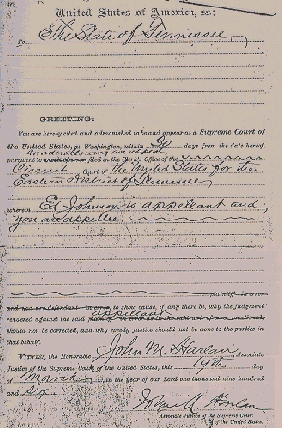 United States of America, ss:
To The State of Tennessee
GREETING:
You are hereby cited and admonished to be and appear at a Supreme Court of
the United States, at Washington, within days from the date hereof,
pursuant to filed in the Clerk's Office of the
Circuit Court of the United States for the
Eastern District of Tennessee,
wherein Ed Johnson is appellant and
you are appellee
to show cause, if any there be, why the judgment
rendered against the said appellant
should not be corrected, and why speedy justice should not be done to the parties in
that behalf.
WITNESS, the Honorable John M. Harlan Associate
Justice of the Supreme Court of the United States, this day
of March, in the year of our Lord one thousand nine hundred
and six.
John M. Harlan
Associate Justice of the Supreme Court
of the United States.